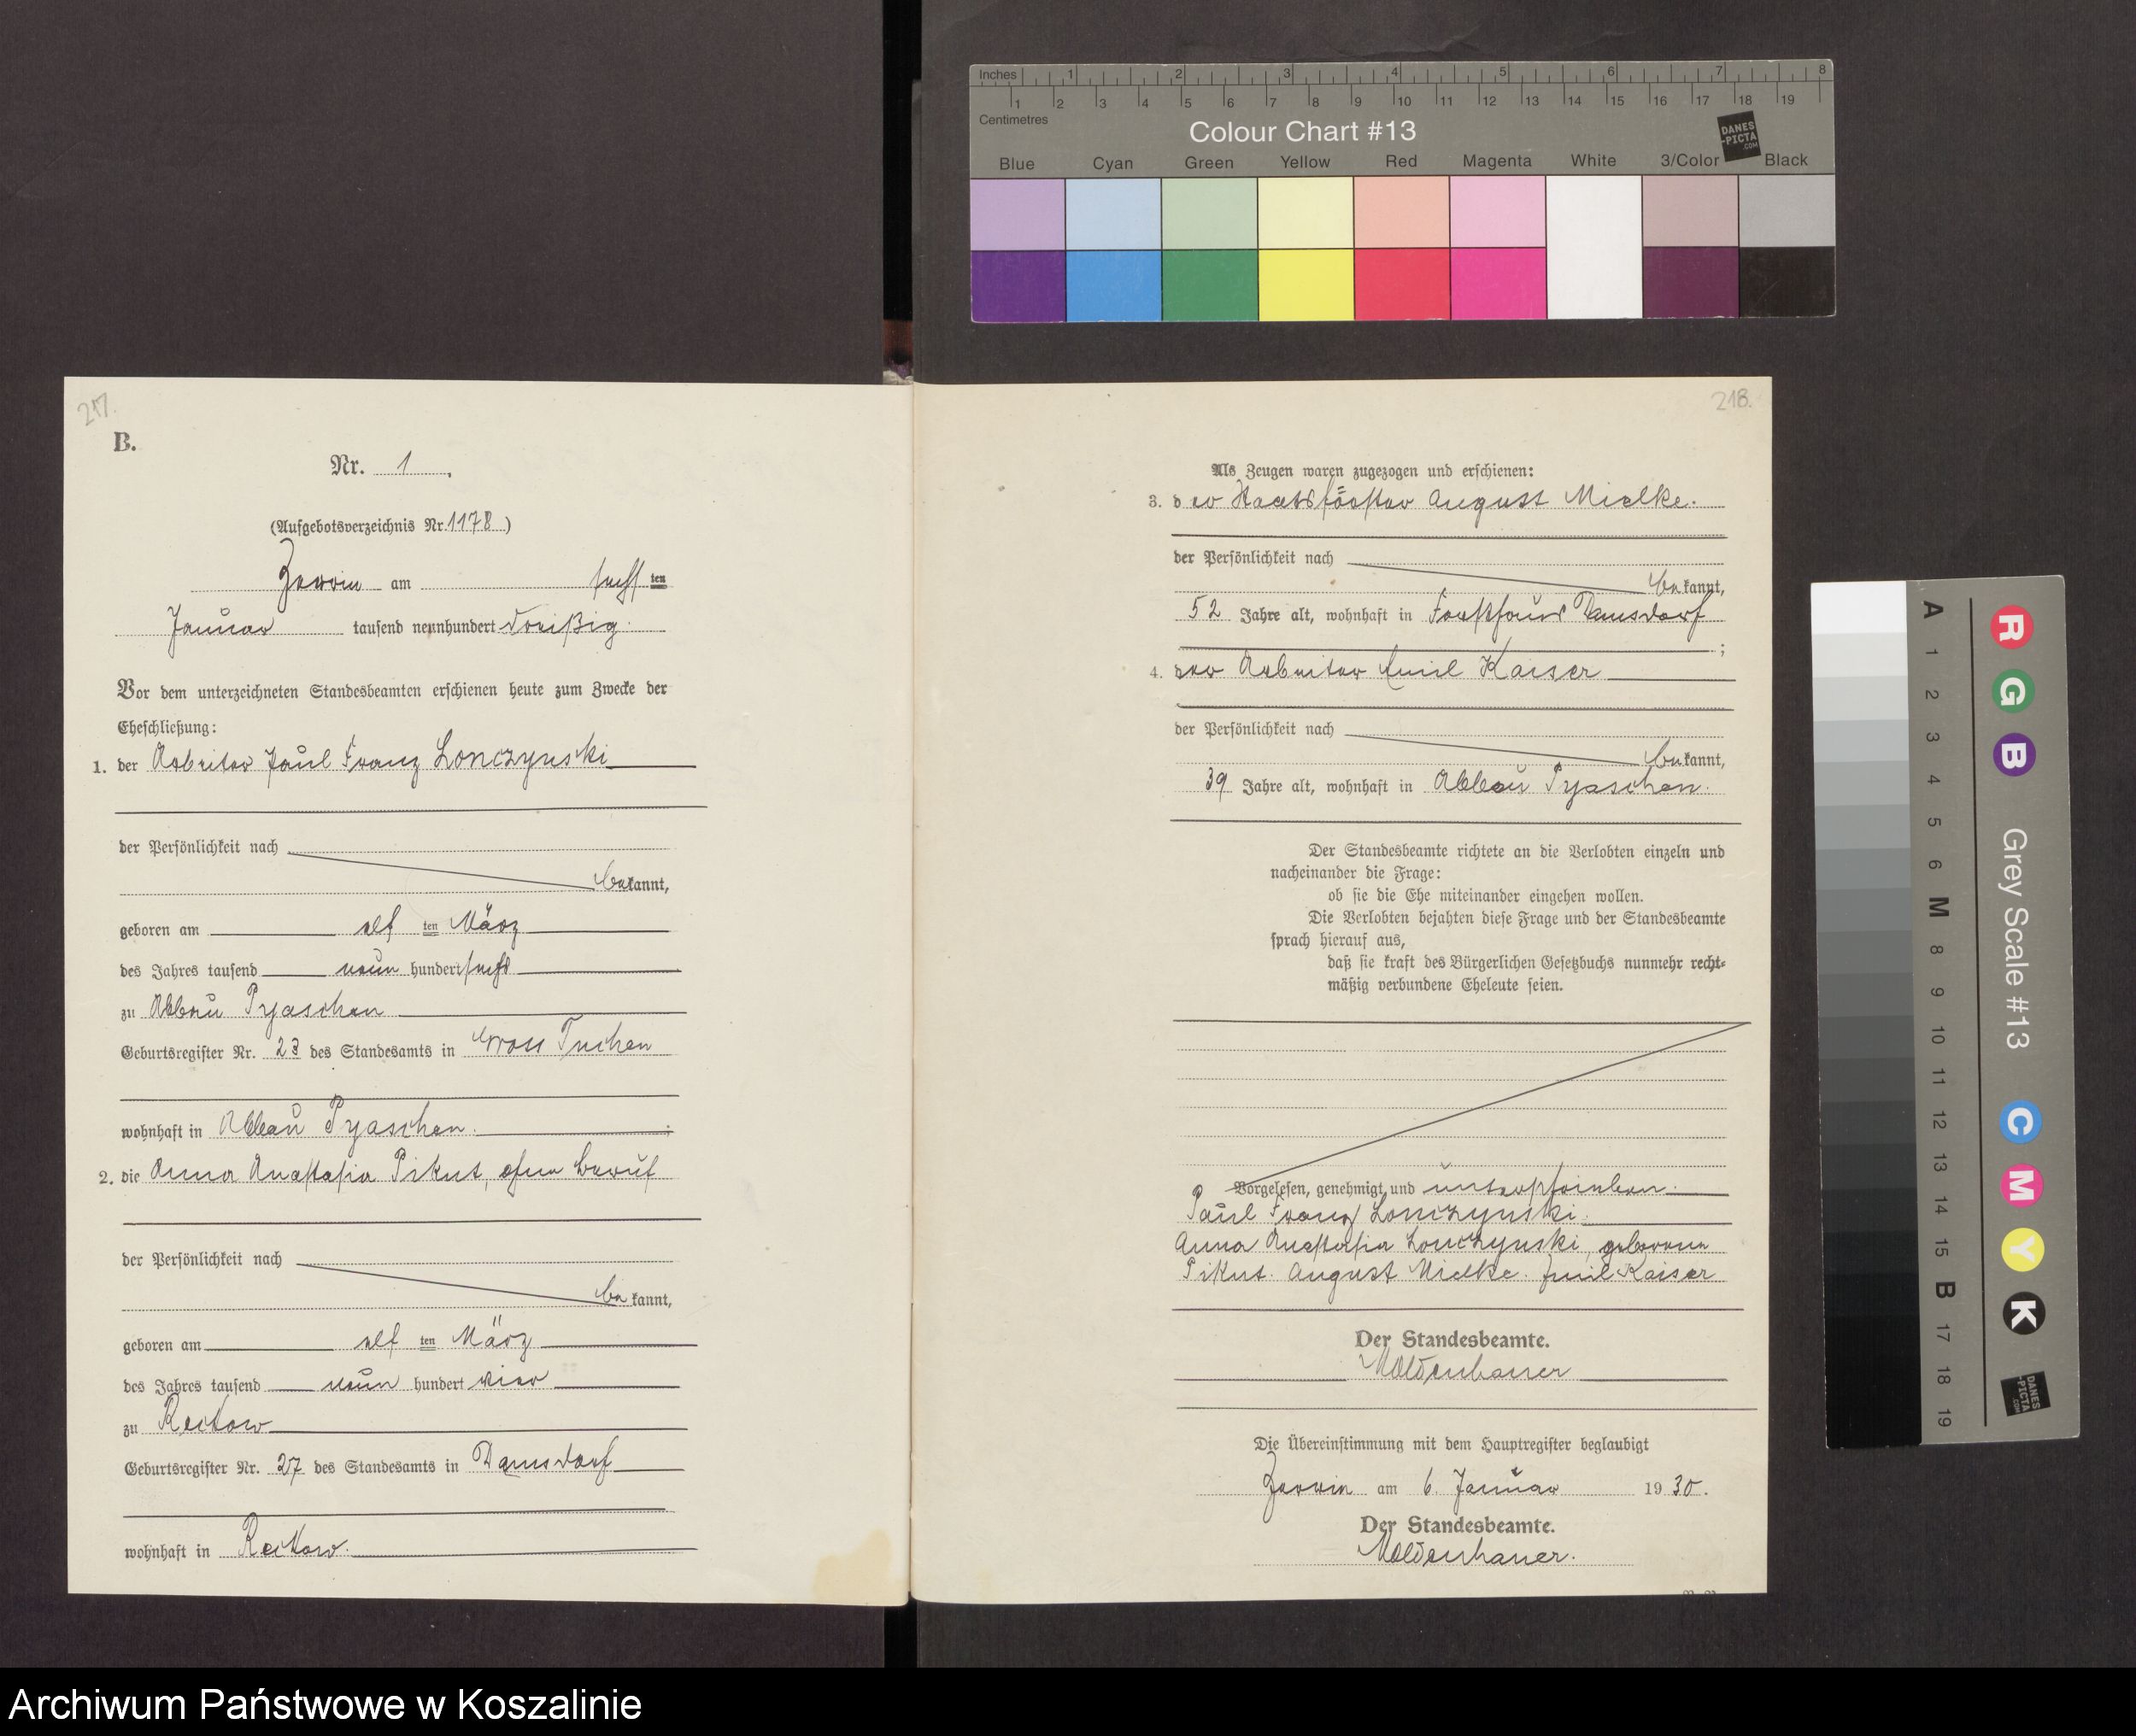 Inches 1 2 3 4 5 6 7 8
1 2 3 4 5 6 7 8 9 10 11 12 13 14 15 16 17 18 19
Centimetres
Colour Chart #13
DANES
-PICTA
.COM
Blue Cyan Green Yellow Red Magenta White 3/Color Black
217.
B.
Nr. 1.
(Aufgebotsverzeichnis Nr. 1178)
Zerrin am sechsten
Januar tausend neunhundert dreißig.
Vor dem unterzeichneten Standesbeamten erschienen heute zum Zwecke der
Eheschließung:
1. der Arbeiter Paul Franz Lonczynski
der Persönlichkeit nach
bekannt,
geboren am elften März
des Jahres tausend neun hundert sechs
zu Abbau Pyaschen
Geburtsregister Nr. 23 des Standesamts in Gross Tuchen
wohnhaft in Abbau Pyaschen. ;
2. die Anna Anastasia Pikut, ohne Beruf
der Persönlichkeit nach
bekannt,
geboren am elften März
des Jahres tausend neun hundert vier
zu Reckow
Geburtsregister Nr. 27 des Standesamts in Damsdorf
wohnhaft in Reckow.
218.
Als Zeugen waren zugezogen und erschienen:
3. der Staatsförster August Mielke.
der Persönlichkeit nach
bekannt,
52 Jahre alt, wohnhaft in Forsthaus Damsdorf
;
4. der Arbeiter Emil Kaiser
der Persönlichkeit nach
bekannt,
39 Jahre alt, wohnhaft in Abbau Pyaschen.
Der Standesbeamte richtete an die Verlobten einzeln und
nacheinander die Frage:
ob sie die Ehe miteinander eingehen wollen.
Die Verlobten bejahten diese Frage und der Standesbeamte
sprach hierauf aus,
daß sie kraft des Bürgerlichen Gesetzbuchs nunmehr recht-
mäßig verbundene Eheleute seien.
Vorgelesen, genehmigt und unterschrieben.
Paul Franz Lonczynski.
Anna Anastasia Lonczynski, geborene
Pikut. August Mielke. Emil Kaiser
Der Standesbeamte.
Moldenhauer
Die Übereinstimmung mit dem Hauptregister beglaubigt
Zerrin am 6. Januar 1930.
Der Standesbeamte.
Moldenhauer.
Grey Scale #13
A 1 2 3 4 5 6 M 8 9 10 11 12 13 14 15 B 17 18 19
R G B C M Y K
DANES
-PICTA
.COM
Archiwum Państwowe w Koszalinie